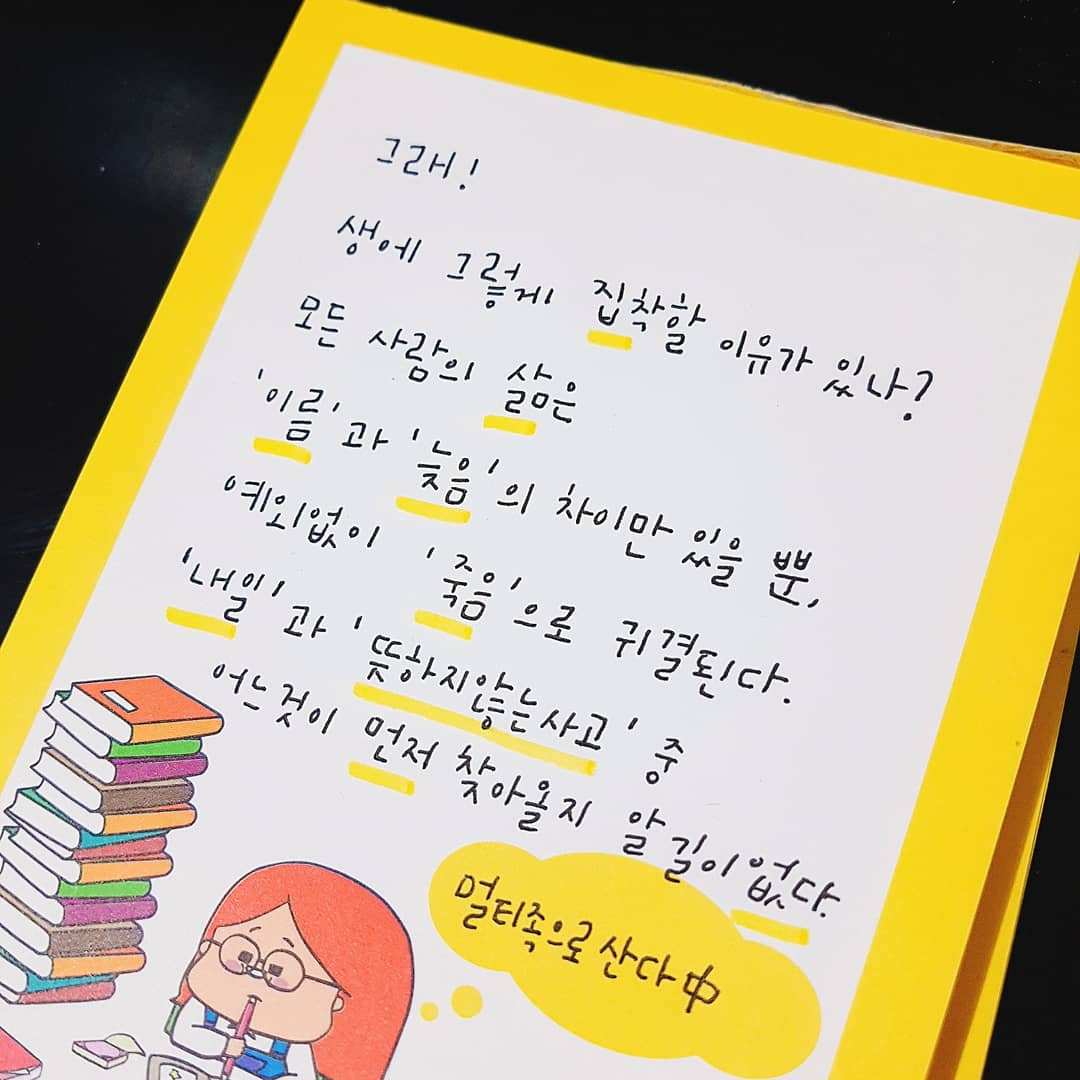 그래!
생에 그렇게 집착할 이유가 있나?
모든 사람의 삶은
'이름'과 '늦음'의 차이만 있을 뿐,
예외없이 '죽음'으로 귀결된다.
'내일'과 '뜻하지않는사고' 중
어느것이 먼저 찾아올지 알 길이없다.
멀티족으로 산다 中